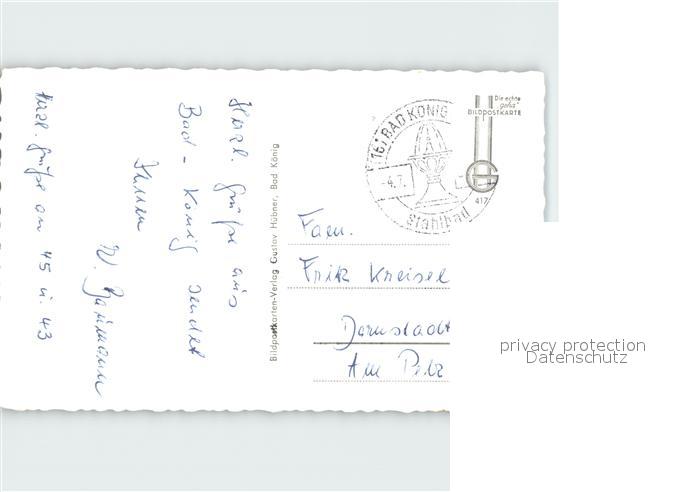 Herzl. Grüße aus
Bad - König sendet
Ihnen
W. Baumann
Herzl. Grüße an 45 u. 43
Bildpostkarten-Verlag Gustav Hübner, Bad König
(16) BAD KÖNIG
Stahlbad
Die echte
"geha"
BILDPOSTKARTE
417
Fam.
Fritz Kneisel
Darmstadt
Am Pelz
privacy protection
Datenschutz